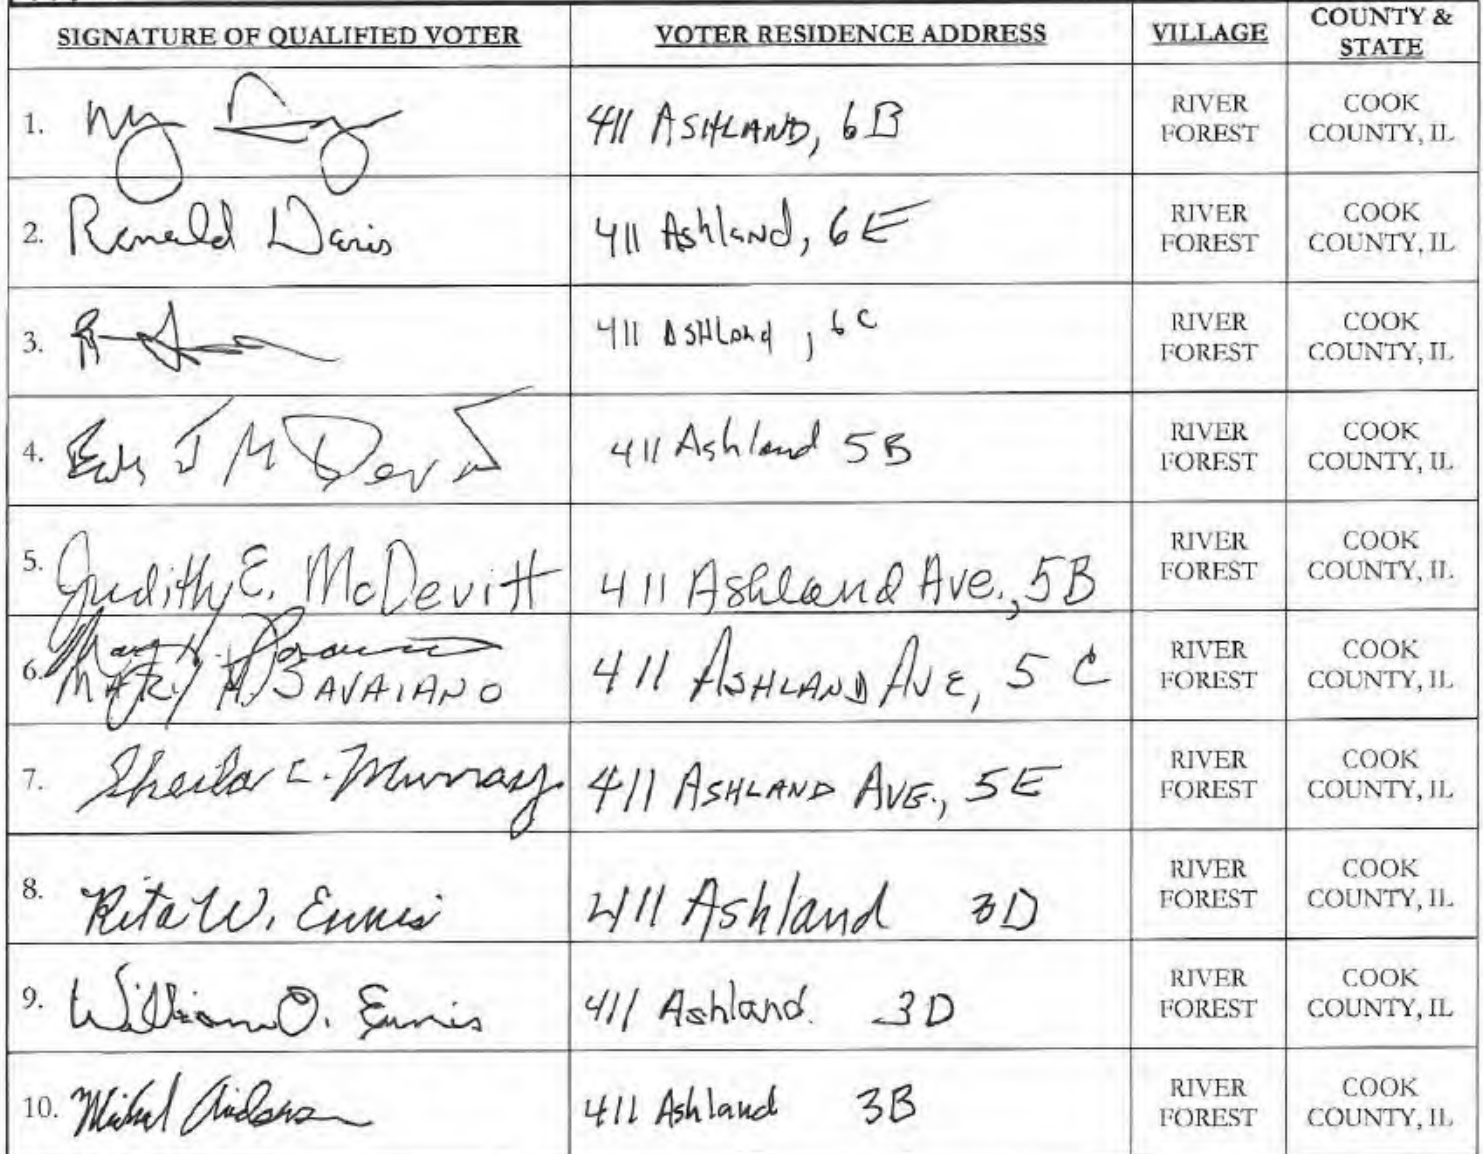 SIGNATURE OF QUALIFIED VOTER VOTER RESIDENCE ADDRESS VILLAGE COUNTY & STATE
1. 411 ASHLAND, 6B RIVER FOREST COOK COUNTY, IL
2. Ronald Davis 411 Ashland, 6E RIVER FOREST COOK COUNTY, IL
3. 411 ASHLand, 6C RIVER FOREST COOK COUNTY, IL
4. J McDevitt 411 Ashland 5B RIVER FOREST COOK COUNTY, IL
5. Judith E. McDevitt 411 Ashland Ave., 5B RIVER FOREST COOK COUNTY, IL
6. Mary A. Savaiano
MARY A. SAVAIANO 411 ASHLAND AVE, 5C RIVER FOREST COOK COUNTY, IL
7. Sheila C. Murray 411 ASHLAND AVE., 5E RIVER FOREST COOK COUNTY, IL
8. Rita W. Ennis 411 Ashland 3D RIVER FOREST COOK COUNTY, IL
9. William O. Ennis 411 Ashland. 3D RIVER FOREST COOK COUNTY, IL
10. Michael Anderson 411 Ashland 3B RIVER FOREST COOK COUNTY, IL